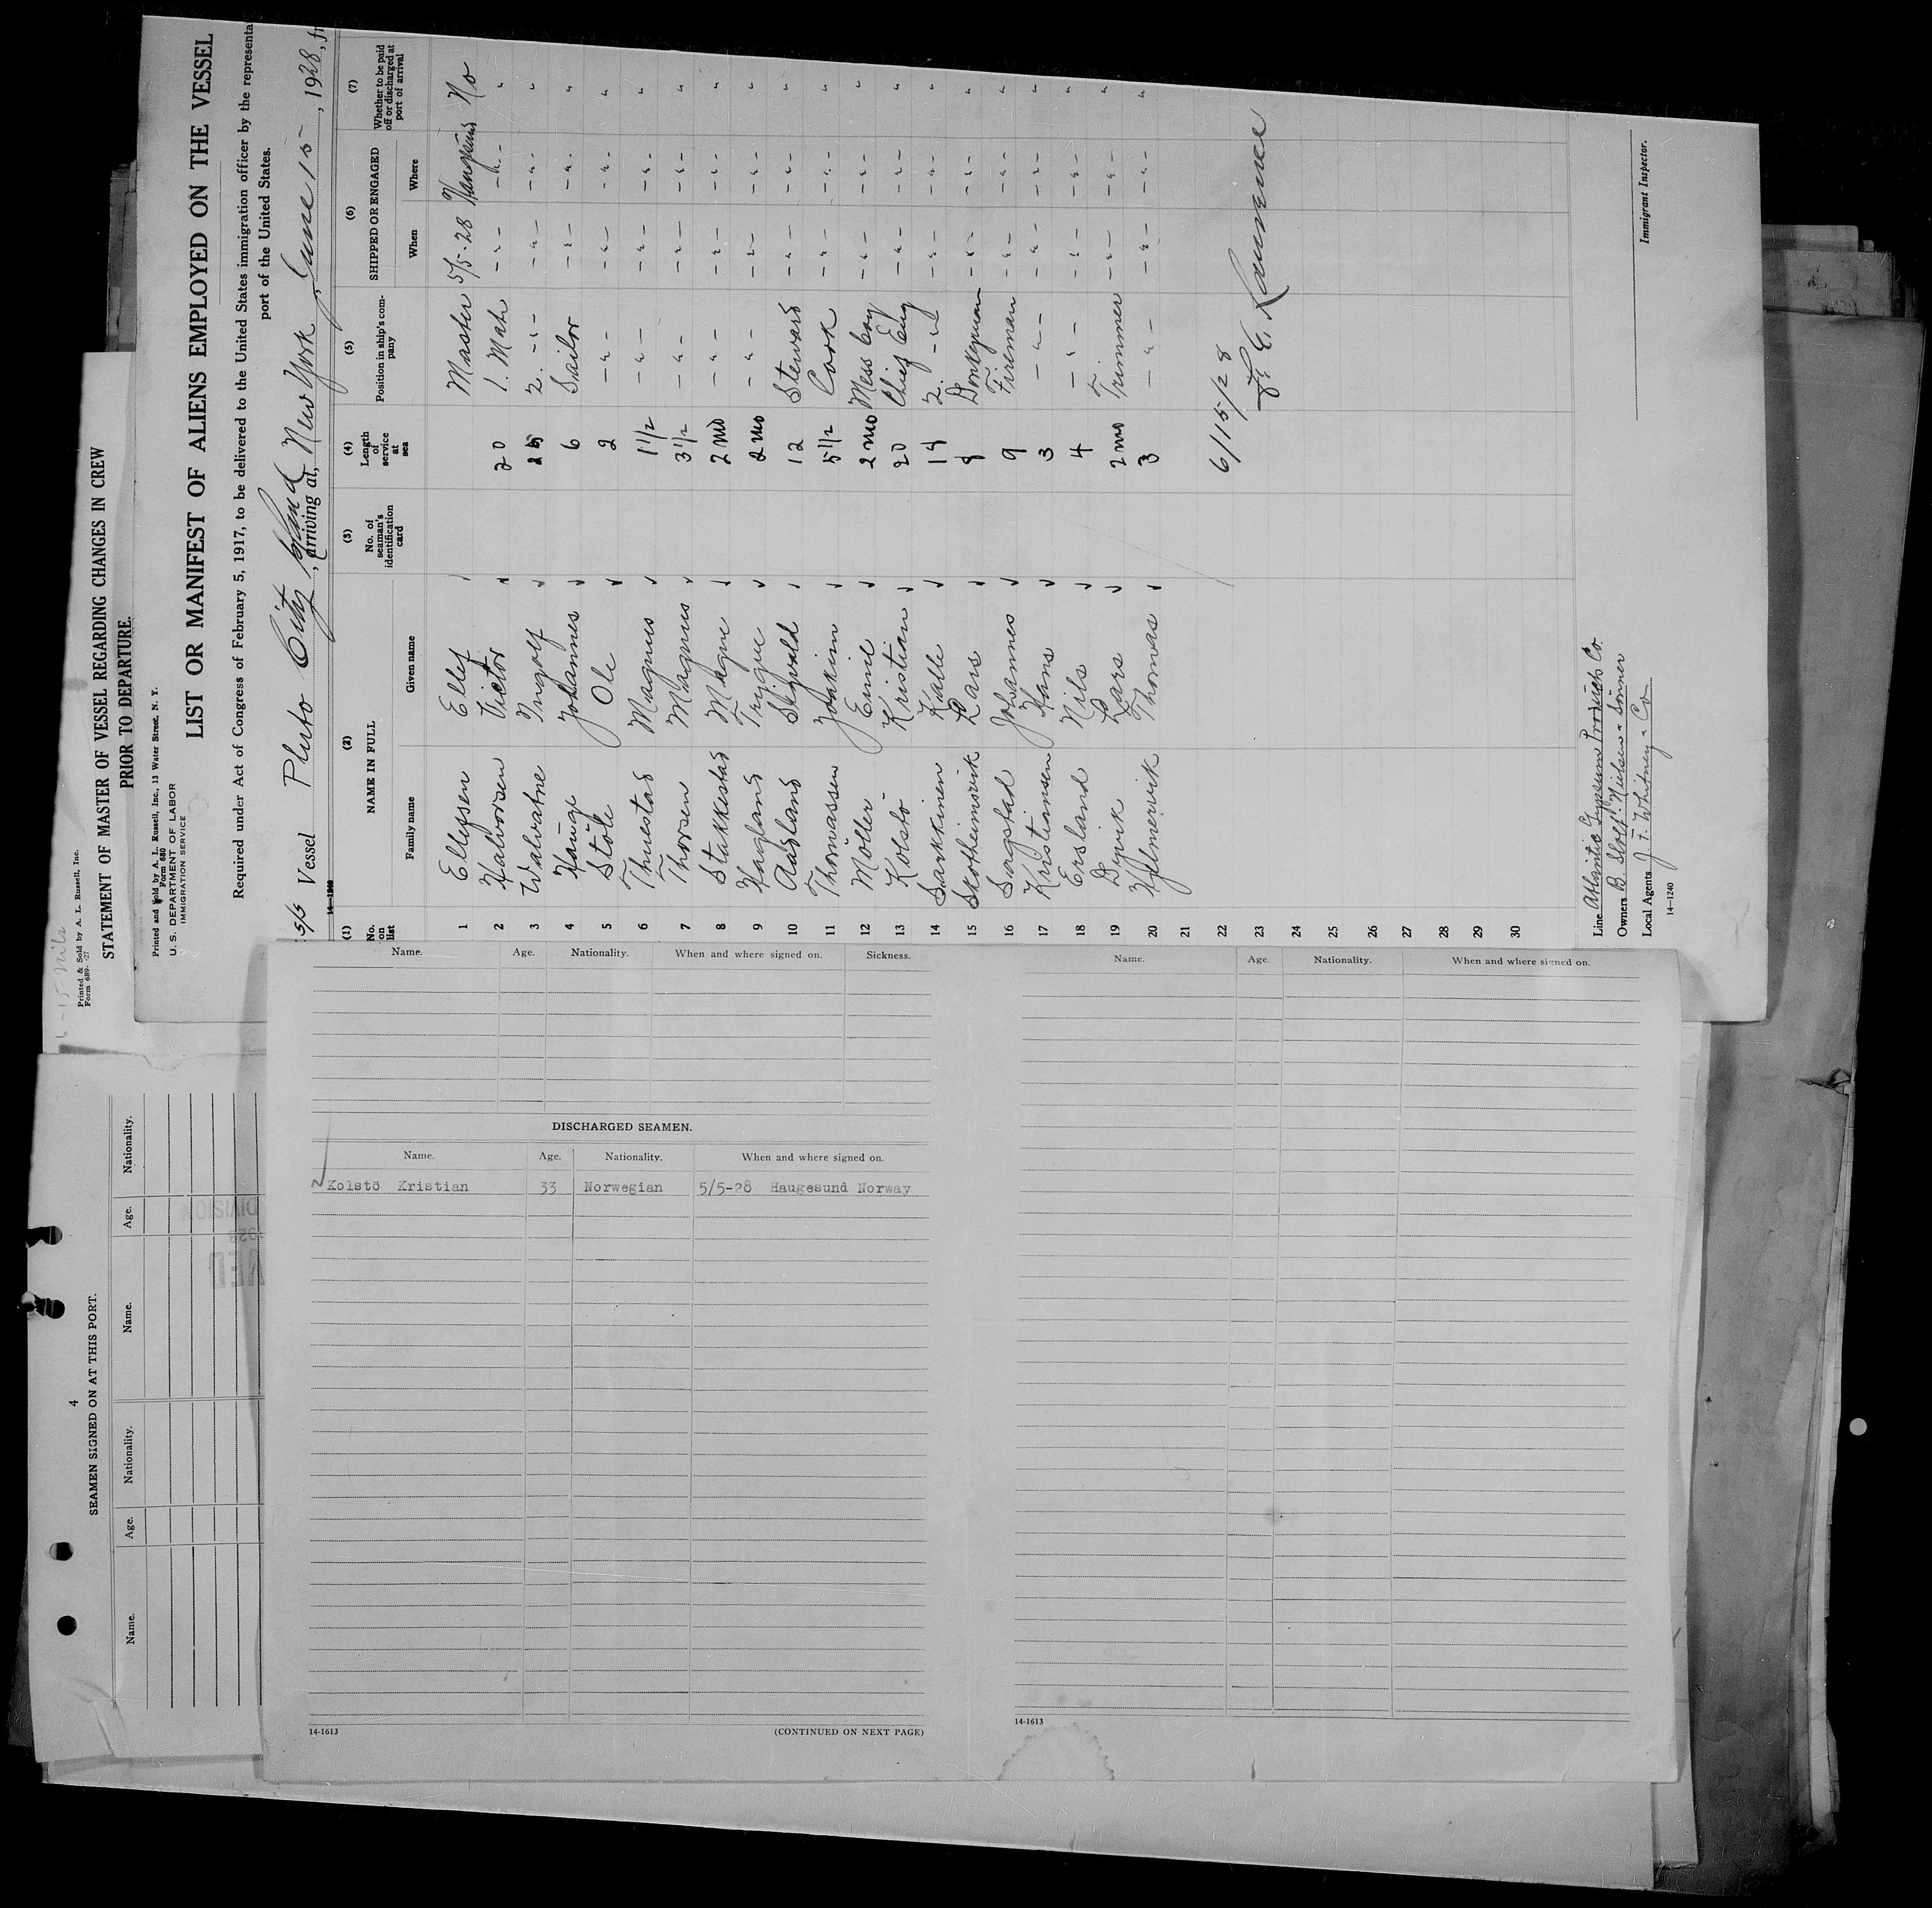 STATEMENT OF MASTER OF VESSEL REGARDING CHANGES IN CREW
PRIOR TO DEPARTURE.
Printed & Sold by A. L. Russell, Inc.
Form 689- -27
Printed and Sold by A. L. Russell, Inc., 13 Water Street, N. Y.
Form 680
U. S. DEPARTMENT OF LABOR
IMMIGRATION SERVICE
LIST OR MANIFEST OF ALIENS EMPLOYED ON THE VESSEL
Required under Act of Congress of February 5, 1917, to be delivered to the United States immigration officer by the representa
port of the United States.
S/S Vessel Pluto City Island, arriving at New York, June 15, 1928, fr
14-1240
(1) (2) (3) (4) (5) (6) (7)
No. on list NAME IN FULL No. of seaman's identification card Length of service at sea Position in ship's company SHIPPED OR ENGAGED Whether to be paid off or discharged at port of arrival
Family name Given name When Where
1 Ellefsen Ellef Master 5/5-28 Haugesund No
2 Halvorsen Victor 20 1. Mate - " - - " - "
3 Walvatne Ingolf 25 2. - " - - " - - " - "
4 Hauge Johannes 6 Sailor - " - - " - "
5 Stöle Ole 2 - " - - " - - " - "
6 Thuestad Magnus 1 1/2 - " - - " - - " - "
7 Thorsen Magnus 3 1/2 - " - - " - - " - "
8 Stakkestad Magne 2 mo - " - - " - - " - "
9 Hagland Trygve 2 mo - " - - " - - " - "
10 Aasland Sigvald 12 Steward - " - - " - "
11 Thomassen Joakim 5 1/2 Cook - " - - " - "
12 Möller Emil 2 mo Mess boy - " - - " - "
13 Kolstö Kristian 20 Chief Eng - " - - " - "
14 Sarkkinen Kalle 14 2. - " - - " - - " - "
15 Skotheimsvik Lars 8 Donkeyman - " - - " - "
16 Sagstad Johannes 9 Fireman - " - - " - "
17 Kristiansen Hans 3 - " - - " - - " - "
18 Ersland Nils 4 - " - - " - - " - "
19 Dypvik Lars 2 mo Trimmer - " - - " - "
20 Hjelmervik Thomas 3 - " - - " - - " - "
21
22
23
24
25
26
27
28
29
30
6/15/28
Line Atlantic Gypsum Products Co.
Owners B. Stolt-Nielsen & Sönner
Local Agents J. F. Whitney & Co
14-1240
Immigrant Inspector.
4
SEAMEN SIGNED ON AT THIS PORT.
Name. Age. Nationality. Name. Age. Nationality.
Name. Age. Nationality. When and where signed on. Sickness.
DISCHARGED SEAMEN.
Name. Age. Nationality. When and where signed on.
Kolstö Kristian 33 Norwegian 5/5-28 Haugesund Norway
14-1613 (CONTINUED ON NEXT PAGE)
Name. Age. Nationality. When and where signed on.
14-1613